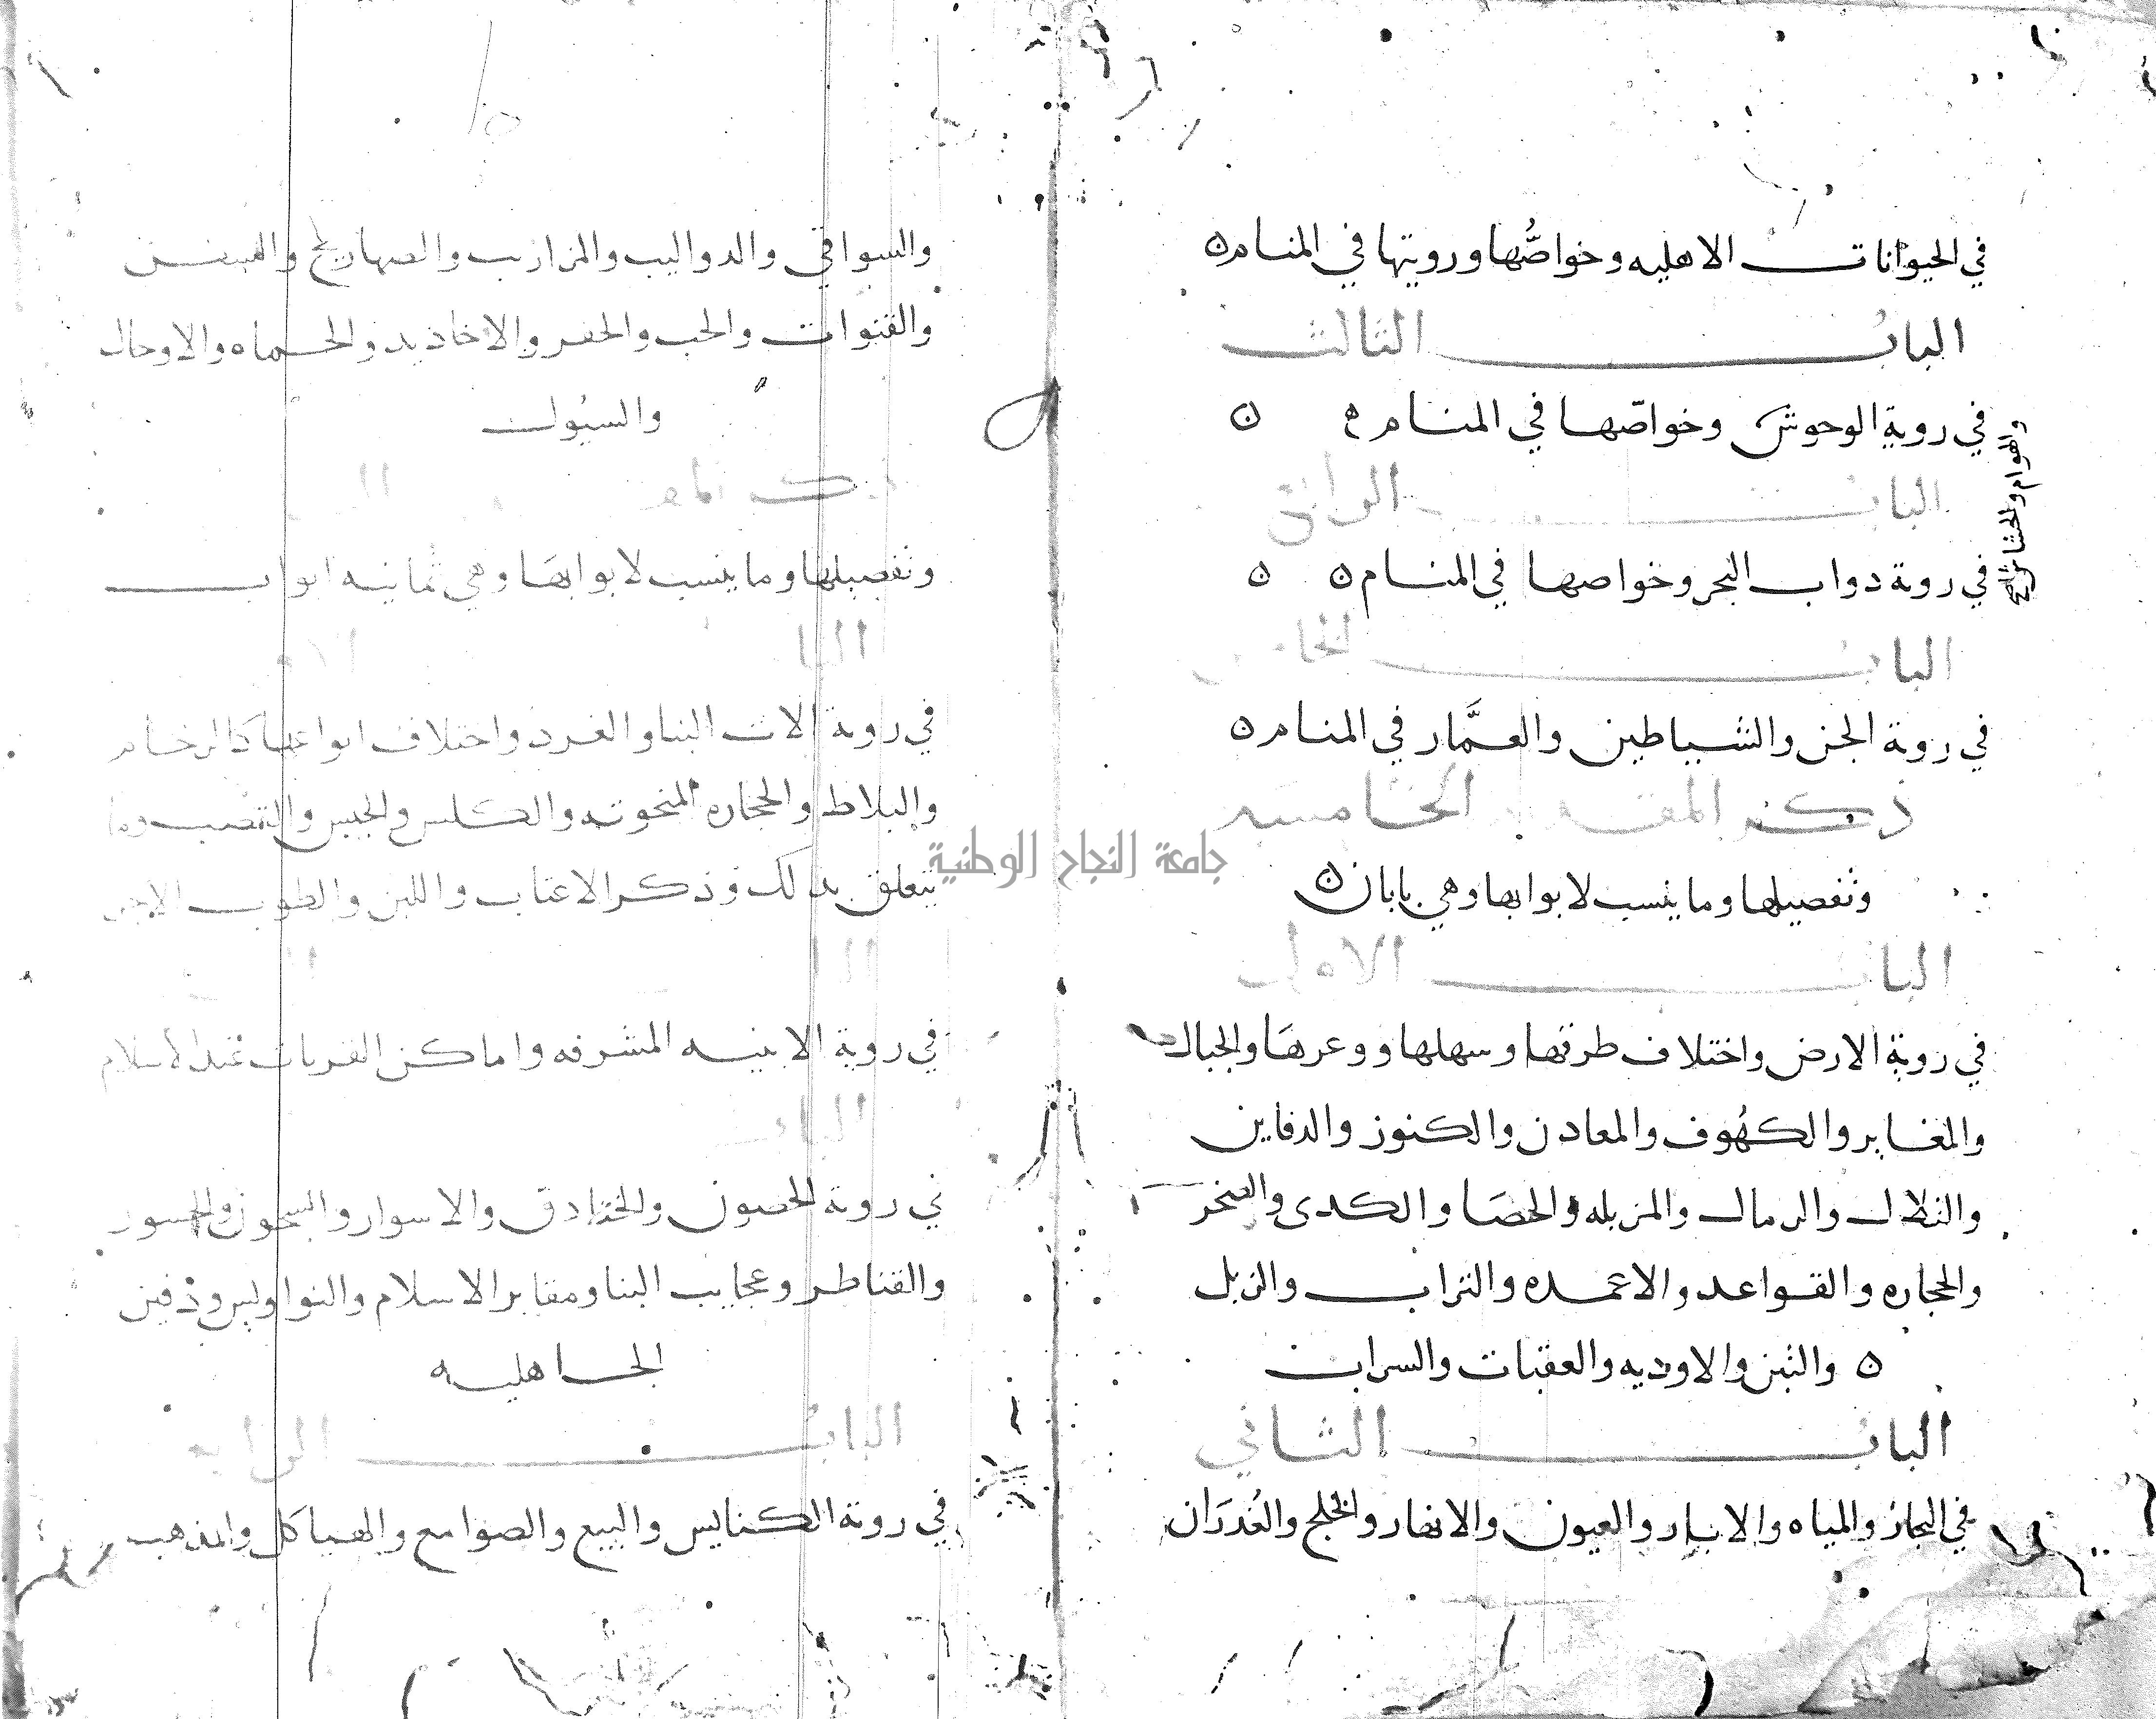 في الحيوانات الاهليه وخواصُّها ورويتها في المنام ن
البابُ الثالث
في روية الوحوش وخواصّها في المنام ه ن
والهوام والحشاش صح
الباب الرابع
في روية دواب البحر وخواصها في المنام ن ن
الباب
في روية الجن والشياطين والعمَّار في المنام ن
ذكر المقدمه الخامسه
وتفصيلها وما ينسب لابوابها وهي بابان ن
الباب الاول
في روية الارض واختلاف طرقها وسهلها ووعرهَا والجبال
والمغاير والكهُوف والمعادن والكنوز والدفاين
والتلال والرمال والمزبله والحصَا والكدى والصخر
والحجاره والقواعد والاعمده والتراب والزبل
ن والتبن والاوديه والعقبات والسراب
الباب الثاني
في البحار والمياه والابار والعيون والانهار والخلج والغُدرَان
والسواقي والدواليب والمزاريب والصهاريج والسفن
والقنوات والجب والحفر والاخاديد والحماه والاوحال
والسيُول
ذكر
وتفصيلها وما ينسب لابوابهَا وهي ثمانيه ابواب
في روية الات البنا والغرد واختلاف انواعها كالرخام
والبلاط والحجاره المنحوته والكلس والجبس والقصب وما
يتعلق بذلك وذكر الاعتاب واللبن والطوب الاجر
في روية الابنيه المشرفه واماكن القربات عند الاسلام
في روية الحصون والخنادق والاسوار والسجون والجسور
والقناطر وعجايب البنا ومقابر الاسلام والنواويس ودفين
الجاهليه
الباب الرابع
في روية الكنايس والبيع والصوامع والهياكل والمذهب
جامعة النجاح الوطنية